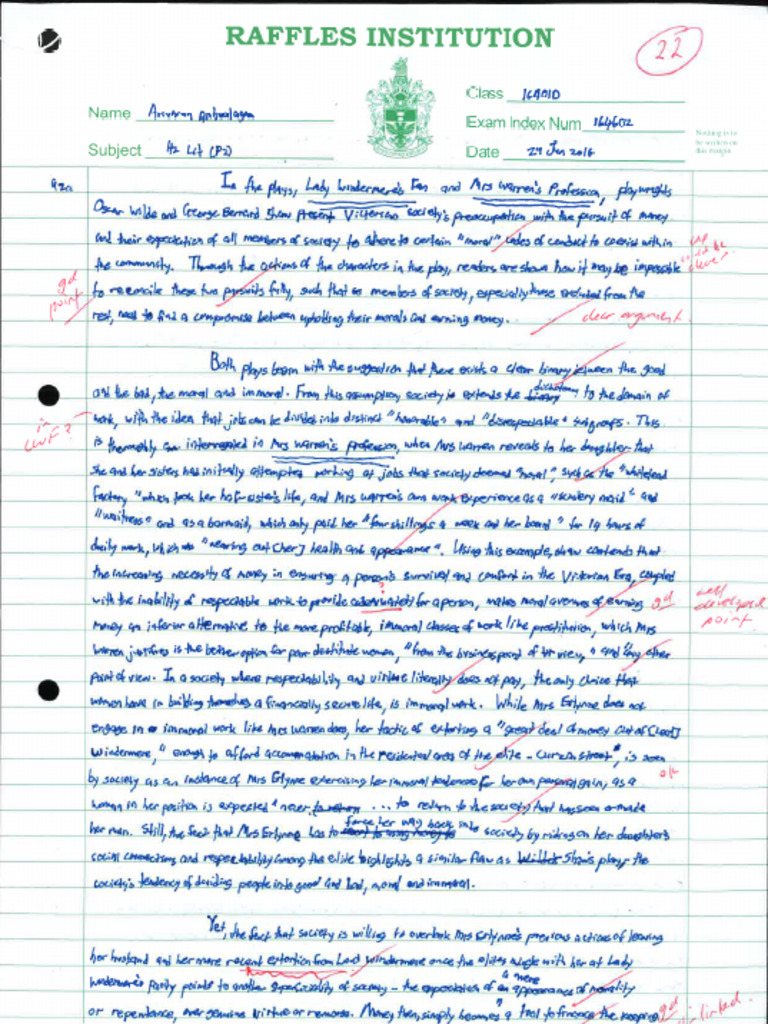 RAFFLES INSTITUTION
22
Class 16A01D
Name
Exam Index Num 164602
Subject H2 Lit (P2)
Date 27 Jun 2016
Nothing is to be written on this margin
Q2a
In the plays, Lady Windermere's Fan and Mrs Warren's Profession, playwrights
Oscar Wilde and George Bernard Shaw present Victorian society's preoccupation with the pursuit of money
and their expectation of all members of society to adhere to certain "moral" codes of conduct to coexist within
the community. Through the actions of the characters in the play, readers are shown how it may be impossible
gd point
to reconcile these two pursuits fully, such that members of society, especially those excluded from the
rest, need to find a compromise between upholding their morals and earning money.
clear argument.
Both plays begin with the suggestion that there exists a clear binary between the good
and the bad, the moral and immoral. From this assumption, society extends the binary dichotomy to the domain of
work, with the idea that jobs can be divided into distinct "honorable" and "disrespectable" subgroups. This
in LWF?
is thoroughly interrogated in Mrs Warren's profession, when Mrs Warren reveals to her daughter that
she and her sisters had initially attempted working at jobs that society deemed "moral", such as the "whitelead
factory" which took her half-sister's life, and Mrs Warren's own work experience as a "scullery maid" and
"waitress" and as a barmaid, which only paid her "four shillings a week and her board" for 14 hours of
daily work, which "wearing out [her] health and appearance". Using this example, Shaw contends that
the increasing necessity of money in ensuring a person's survival and comfort in the Victorian Era, coupled
with the inability of respectable work to provide adequately for a person, makes moral avenues of earning
?
gd
well developed point.
money an inferior alternative to the more profitable, immoral classes of work like prostitution, which Mrs
Warren justifies is the better option for poor destitute women, "from the business point of view," and any other
point of view. In a society where respectability and virtue literally does not pay, the only choice that
women have in building themselves a financially secure life, is immoral work. While Mrs Erlynne does not
engage in immoral work like Mrs Warren does, her tactic of extorting a "great deal of money out of [Lord]
Windermere," enough to afford accommodation in the residential area of the elite - Curzon Street", is seen
by society as an instance of Mrs Erlynne exercising her immoral tendencies for her own personal gain, as a
ok
woman in her position is expected "never ... to return to the society that has seen or made
her ruin. Still, the fact that Mrs Erlynne has to force her way back into society by riding on her daughter's
social connections and respectability among the elite highlights a similar flaw as Shaw's play - the
society's tendency of dividing people into good and bad, moral and immoral.
Yet, the fact that society is willing to overlook Mrs Erlynne's previous actions of leaving
her husband and her more recent extortion from Lord Windermere once the elites mingle with her at Lady
Windermere's party points to another superficiality of society - the expectation of a mere "appearance of morality
or repentance, over genuine virtue or remorse. Money then, simply becomes a tool to finance the keeping
gd
linked.